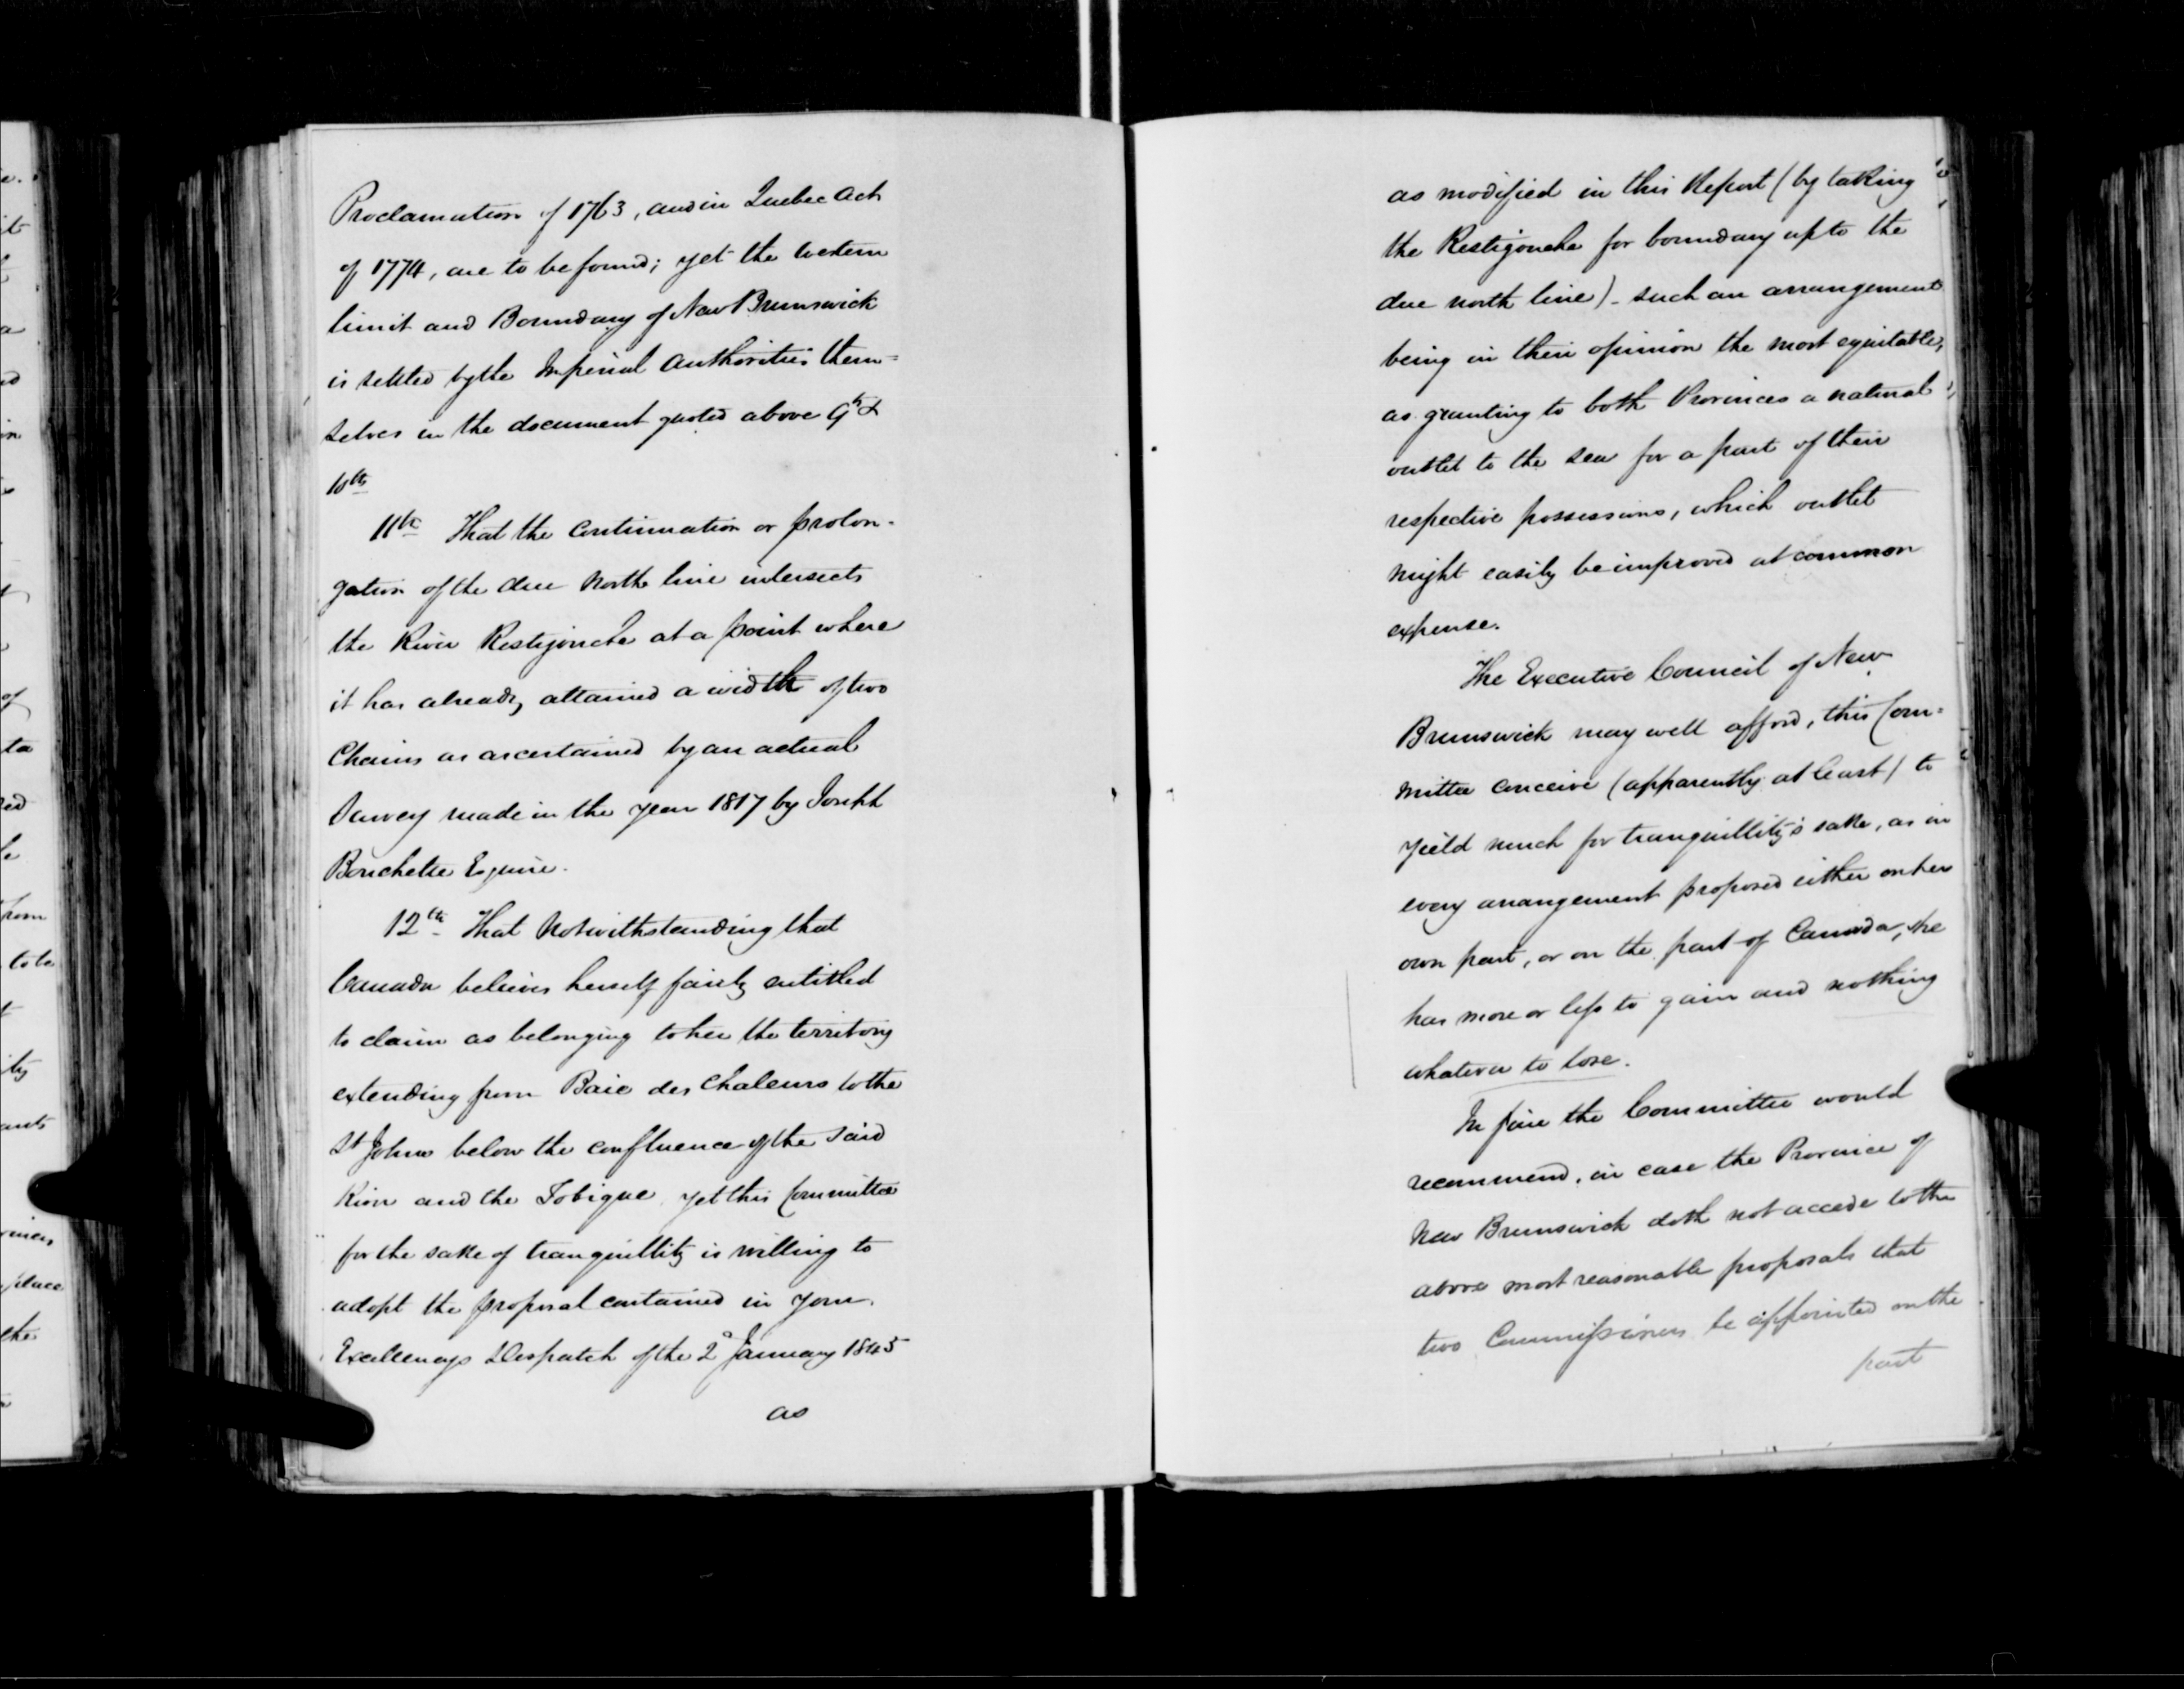 Proclamation of 1763, and in Quebec Act
of 1774, are to be found; yet the western
limit and Boundary of New Brunswick
is settled by the Imperial Authorities them=
selves in the document quoted above 9th &
10th
11th That the continuation or prolon-
gation of the due North line intersects
the River Restigouche at a point where
it has already attained a width of two
Chains as ascertained by an actual
Survey made in the year 1817 by Joseph
Bouchette Esquire.
12th That Notwithstanding that
Canada believes herself fairly entitled
to claim as belonging to her the territory
extending from Baie des Chaleurs to the
St Johns below the confluence of the said
River and the Tobique, yet this Committee
for the sake of tranquillity is willing to
adopt the proposal contained in your
Excellencys Despatch of the 2d January 1845
as
as modified in this Report (by taking
the Restigouche for boundary up to the
due north line) - such an arrangement
being in their opinion the most equitable,
as granting to both Provinces a natural
outlet to the sea for a part of their
respective possessions, which outlet
might easily be improved at common
expense.
The Executive Council of New
Brunswick may well afford, this Com=
mittee conceive (apparently at least) to
yield much for tranquillity's sake, as in
every arrangement proposed either on her
own part, or on the part of Canada, she
has more or less to gain and nothing
whatever to lose.
In fine the Committee would
recommend, in case the Province of
New Brunswick doth not accede to the
above most reasonable proposals that
two Commissioners be appointed on the
part